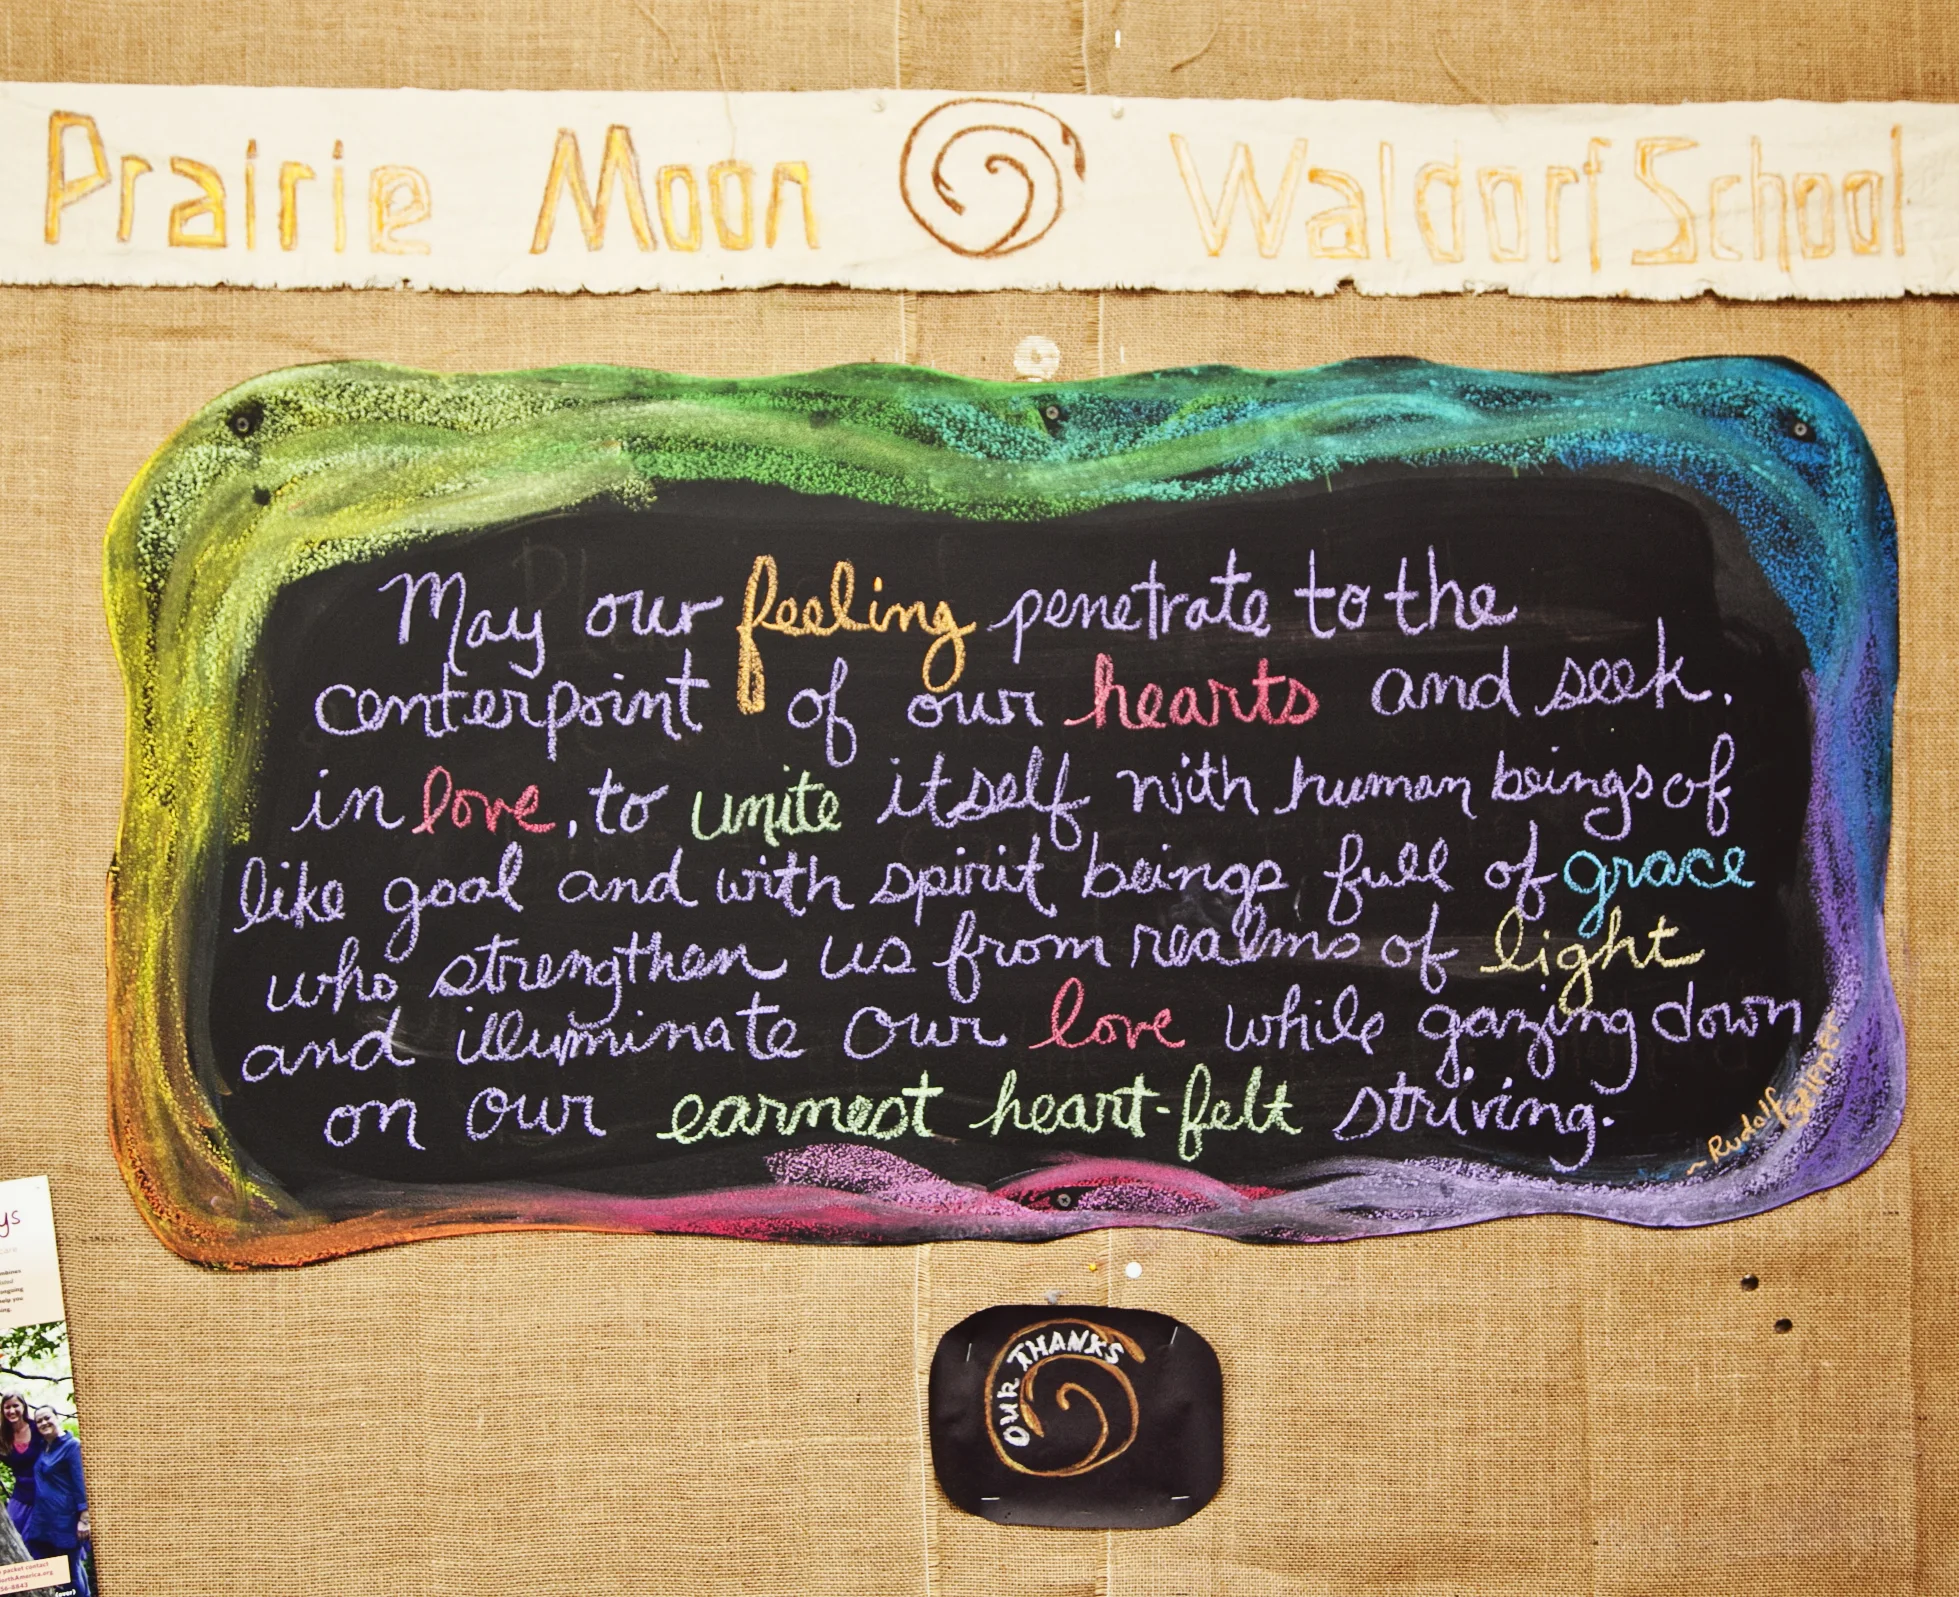 Prairie Moon Waldorf School
May our feeling penetrate to the
centerpoint of our hearts and seek,
in love, to unite itself with human beings of
like goal and with spirit beings full of grace
who strengthen us from realms of light
and illuminate our love while gazing down
on our earnest heart-felt striving.
~ Rudolf
Steiner
OUR THANKS
ys
care
help you
packet contact
orthAmerica.org
56-8843
(over)